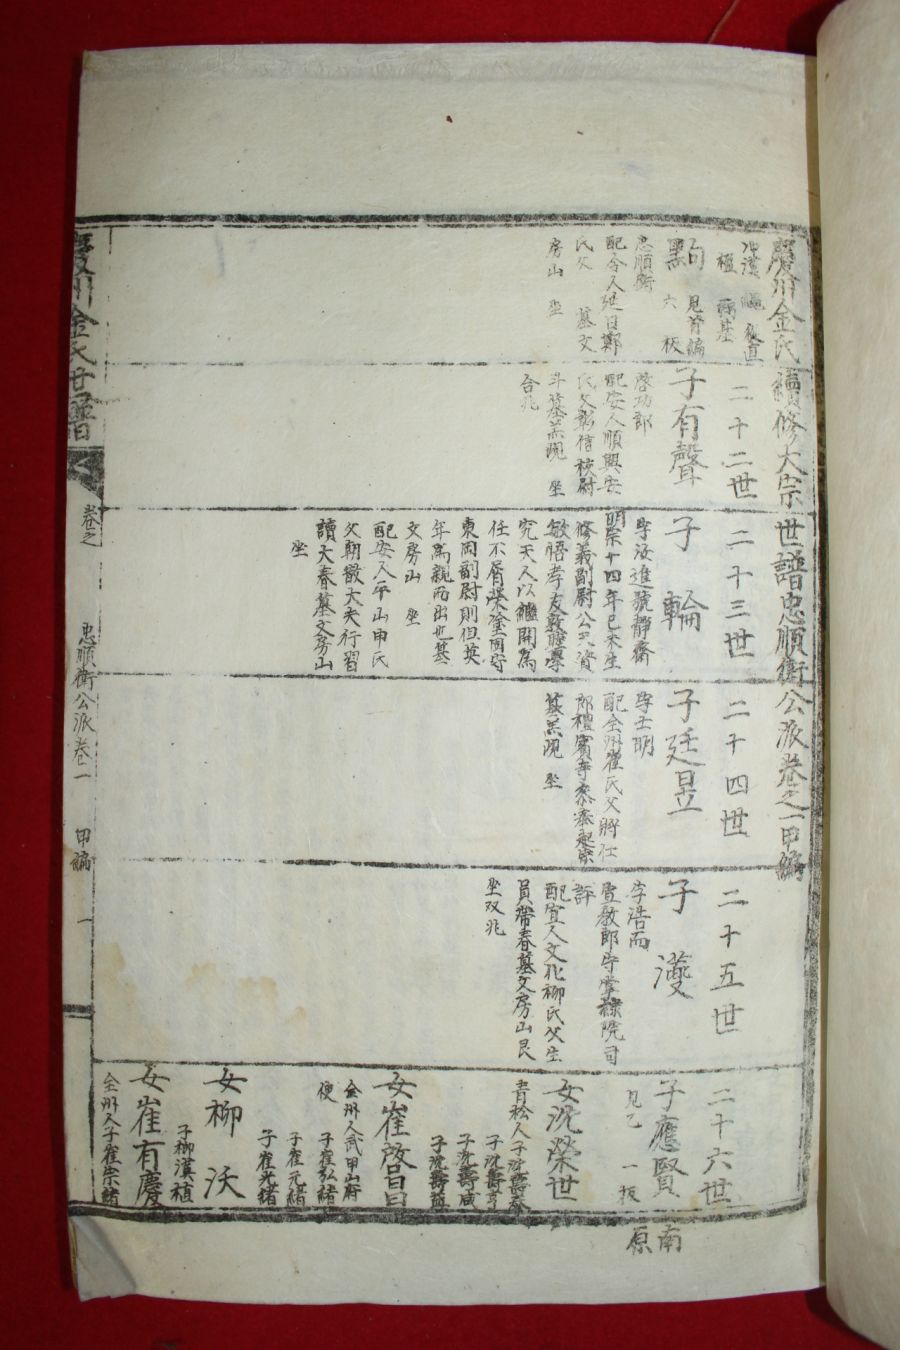 慶州金氏續修大宗世譜忠順衛公派卷之一甲編
駒
見首編
六板
忠順衛
配令人延日鄭
氏父 墓文
房山 坐
二十二世
子有聲
啓功郎
配安人順興安
氏父彰信校尉
斗墓羔峴 坐
合兆
二十三世
子 輪
字汝進號靜齋
明宗十四年己未生
修義副尉公天資
敏悟孝友敦睦學
究天人以繼開爲
任不屑榮塗固守
東岡副尉則但英
年爲親而出也墓
文房山 坐
配安人平山申氏
父朝散大夫行習
讀大春墓文房山
坐
二十四世
子廷昱
字士明
配全州崔氏父將仕
郎禮賓寺參奉起宗
墓羔峴 坐
二十五世
子 濩
字浩而
宣敎郎守掌隷院司
評
配宜人文化柳氏父生
員帶春墓文房山艮
坐双兆
二十六世
子應賢
見乙 一板
女沈榮世
青松人子沈壽春
子沈壽亨
子沈壽咸
子沈壽益
女崔啓昌
全州人武甲山府
使 子崔弘緒
子崔元緒
子崔光緒
女柳 沃
子柳漢楨
女崔有慶
全州人子崔宗緒
南
原
慶州金氏世譜
卷之
忠順衛公派卷一
甲編
一